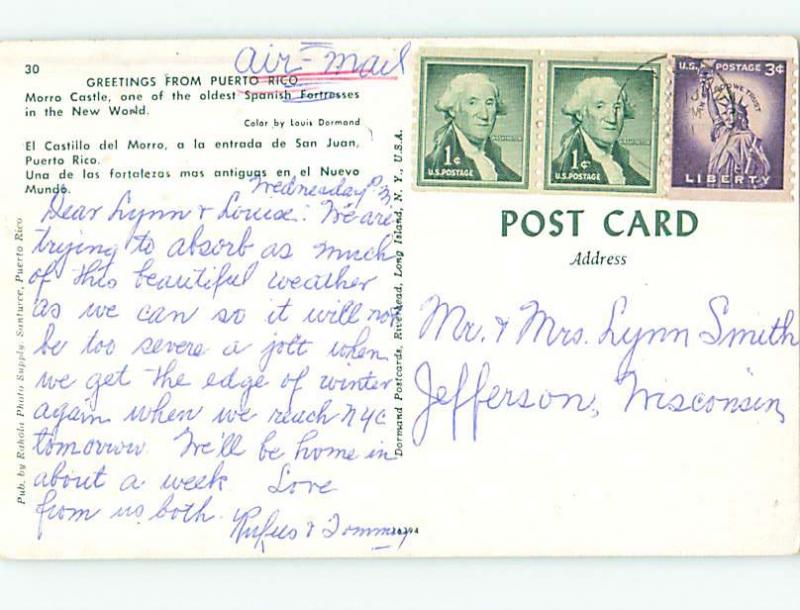 air-mail
30
GREETINGS FROM PUERTO RICO
Morro Castle, one of the oldest Spanish Fortresses
in the New World.
Color by Louis Dormand
El Castillo del Morro, a la entrada de San Juan,
Puerto Rico.
Una de las fortalezas mas antiguas en el Nuevo
Mundo.
Wednesday P.M.
Dear Lynn & Louise: We are
trying to absorb as much
of this beautiful weather
as we can so it will not
be too severe a jolt when
we get the edge of winter
again when we reach NYC
tomorrow. We'll be home in
about a week. Love
from us both.
Rufus & Tommy
Pub. by Rahola Photo Supply, Santurce, Puerto Rico
Dormand Postcards, Riverhead, Long Island, N. Y., U.S.A.
1¢
U.S. POSTAGE
1¢
U.S. POSTAGE
U.S. POSTAGE 3¢
IN GOD WE TRUST
LIBERTY
POST CARD
Address
Mr. & Mrs. Lynn Smith
Jefferson, Wisconsin